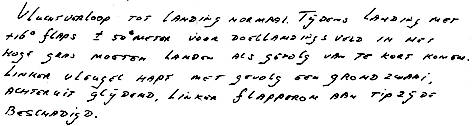 VLUCHTVERLOOP TOT LANDING NORMAAL. TIJDENS LANDING MET
+16° FLAPS ± 50 METER VOOR DOELLANDINGSVELD IN HET
HOGE GRAS MOETEN LANDEN ALS GEVOLG VAN TE KORT KOMEN.
LINKER VLEUGEL HAPT MET GEVOLG EEN GRONDZWAAI,
ACHTERUIT GLIJDEND, LINKER FLAPPEROM AAN TIPZIJDE
BESCHADIGD.